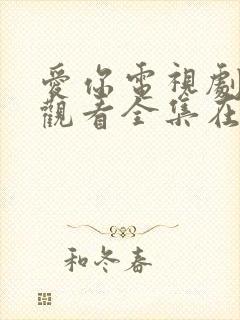 愛你電視劇
觀看全集在
和冬春